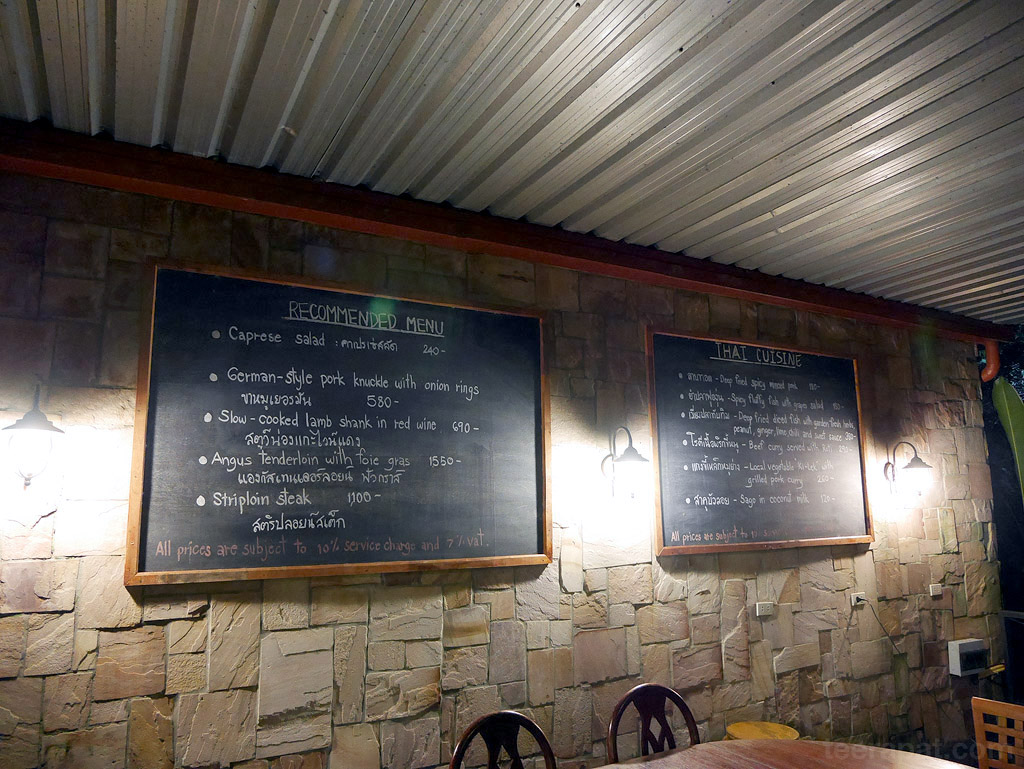 RECOMMENDED MENU
Caprese salad : คาปเรเซ่สลัด 240-
German-style pork knuckle with onion rings
ขาหมูเยอรมัน 580-
Slow-cooked lamb shank in red wine 690-
Angus tenderloin with foie gras 1550-
Striploin steak 1100-
สตริปลอยน์สเต็ก
All prices are subject to 10% service charge and 7% vat.
THAI CUISINE
ลาบทอด - Deep fried spicy minced pork
ยำปลาดุกฟู - Spicy fluffy fish with grapes salad
Deep fried diced fish with garden fresh herbs,
peanut, ginger, lime chili and sweet sauce
Beef curry served with
Local vegetable with
grilled pork curry
สาคูบัวลอย - Sago in coconut milk 120-
All prices are subject to 10%